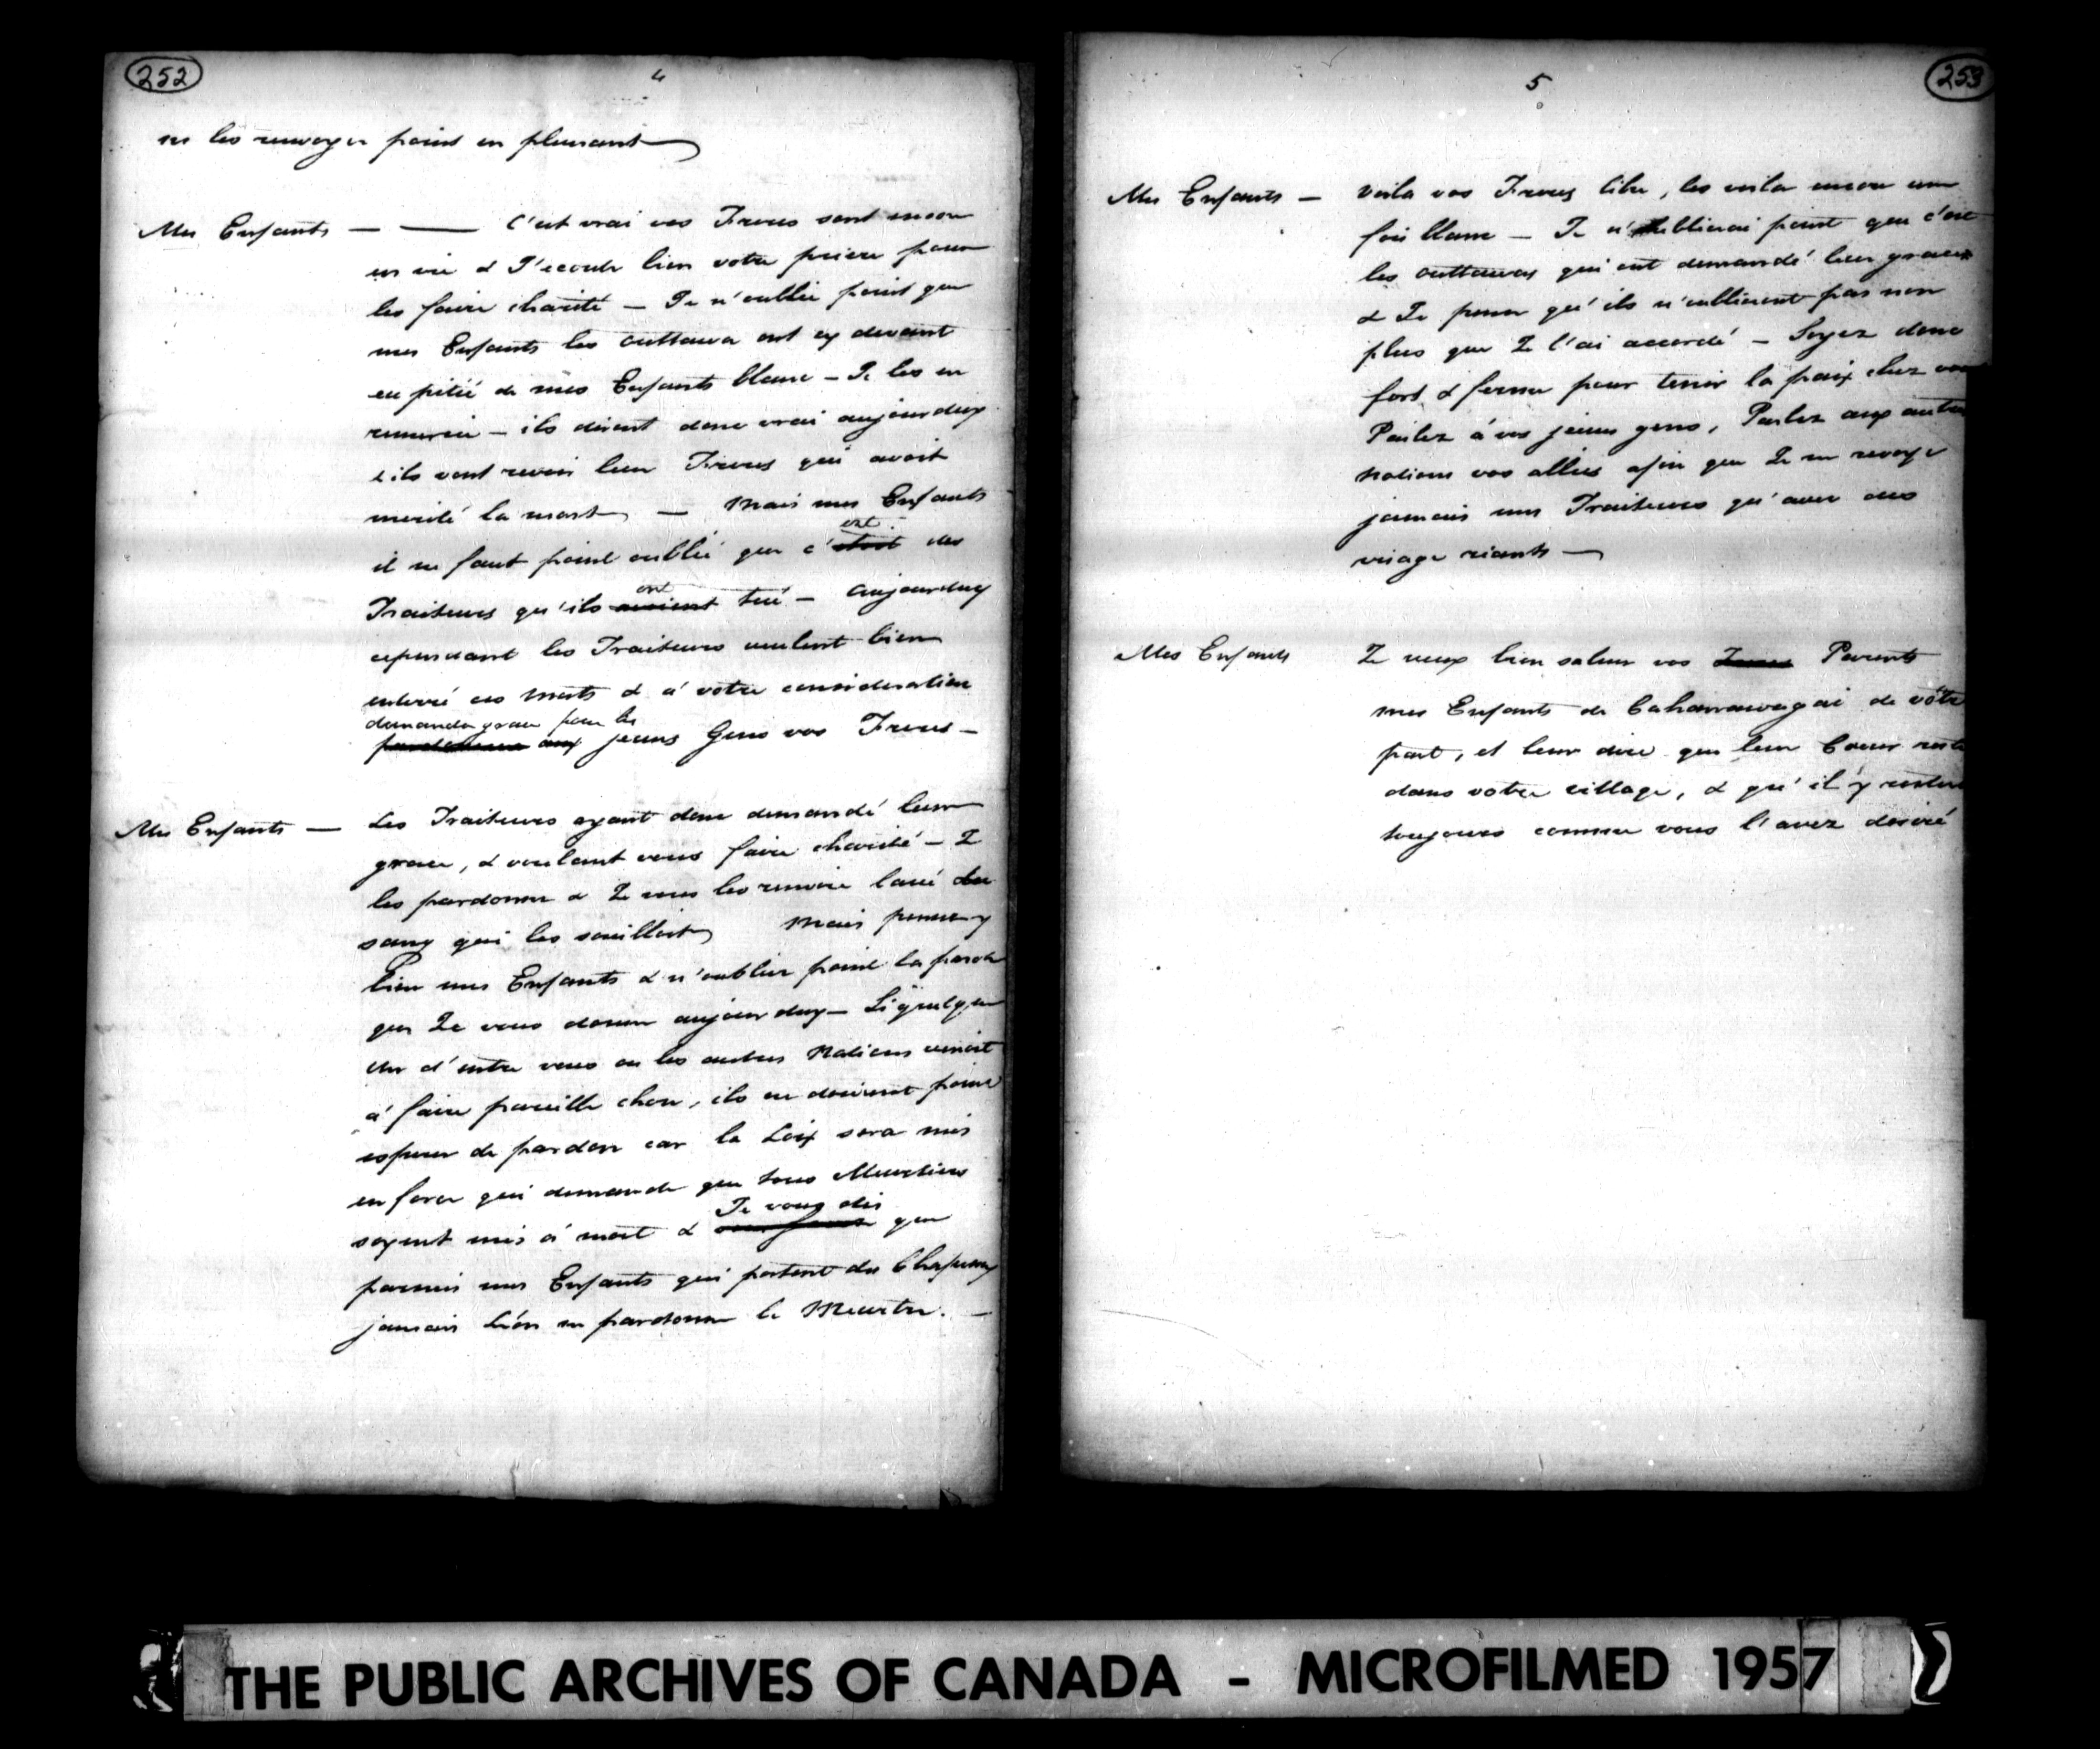 252
4
ne les renvoyer point en pleurant
Mes Enfants — — C'est vrai vos Freres sont encore
en vie & J'ecoute bien votre priere pour
les faire charité — Je n'oublie point que
mes Enfants les Outtawa ont cy devant
eu pitié de mes Enfants blanc — Je les en
remercie — ils disent donc vrai aujourduy
s'ils vont revoir leur Freres qui avoit
merité la mort — Mais mes Enfants
il ne faut point oublié que c'etoit est des
Traiteurs qu'ils avoient ont tué — Aujourduy
cependant les Traiteurs veulent bien
enterré ces Morts & a' votre consideration
demander grace pour les
pardonner aux jeunes Gens vos Freres —
Mes Enfants — Les Traiteurs ayant donc demandé leur
grace, & voulant vous faire charité — Je
les pardonne & Je vous les renvoie lavé du
sang qui les souilloit Mais pensez y
bien mes Enfants & n'oublier point la parole
que Je vous donne aujourduy — Si quelque
un d'entre vous ou les autres Nations venoit
a' faire pareille chose, ils ne doivent point
esperer de pardon car la Loix sera mis
en force qui demande que tous Meurtriers
Je vous dis
soyent mis a' mort & que
parmis mes Enfants qui portent des Chapeaux
jamais l'on ne pardonne le Meurtre. —
5
253
Mes Enfants — Voila vos Freres libre, les voila encore une
fois blanc — Je n'oublierai point que c'est
les Outtawas qui ont demandé leur graces
& Je pense qu'ils n'oublieront pas non
plus que Je l'ai accordé — Soyez donc
fort & ferme pour tenir la paix chez vous
Parlez a' vos jeunes gens, Parlez aux autres
Nations vos alliés afin que Je ne revoye
jamais mes Traiteurs qu'avec des
visage riants —
Mes Enfants Je veux bien saluer vos Freres Parents
mes Enfants de Cahanawagai de votre
part, et leur dire que leur Coeur reste
dans votre village, & qu'il y restera
toujours comme vous l'avez desiré
THE PUBLIC ARCHIVES OF CANADA - MICROFILMED 1957